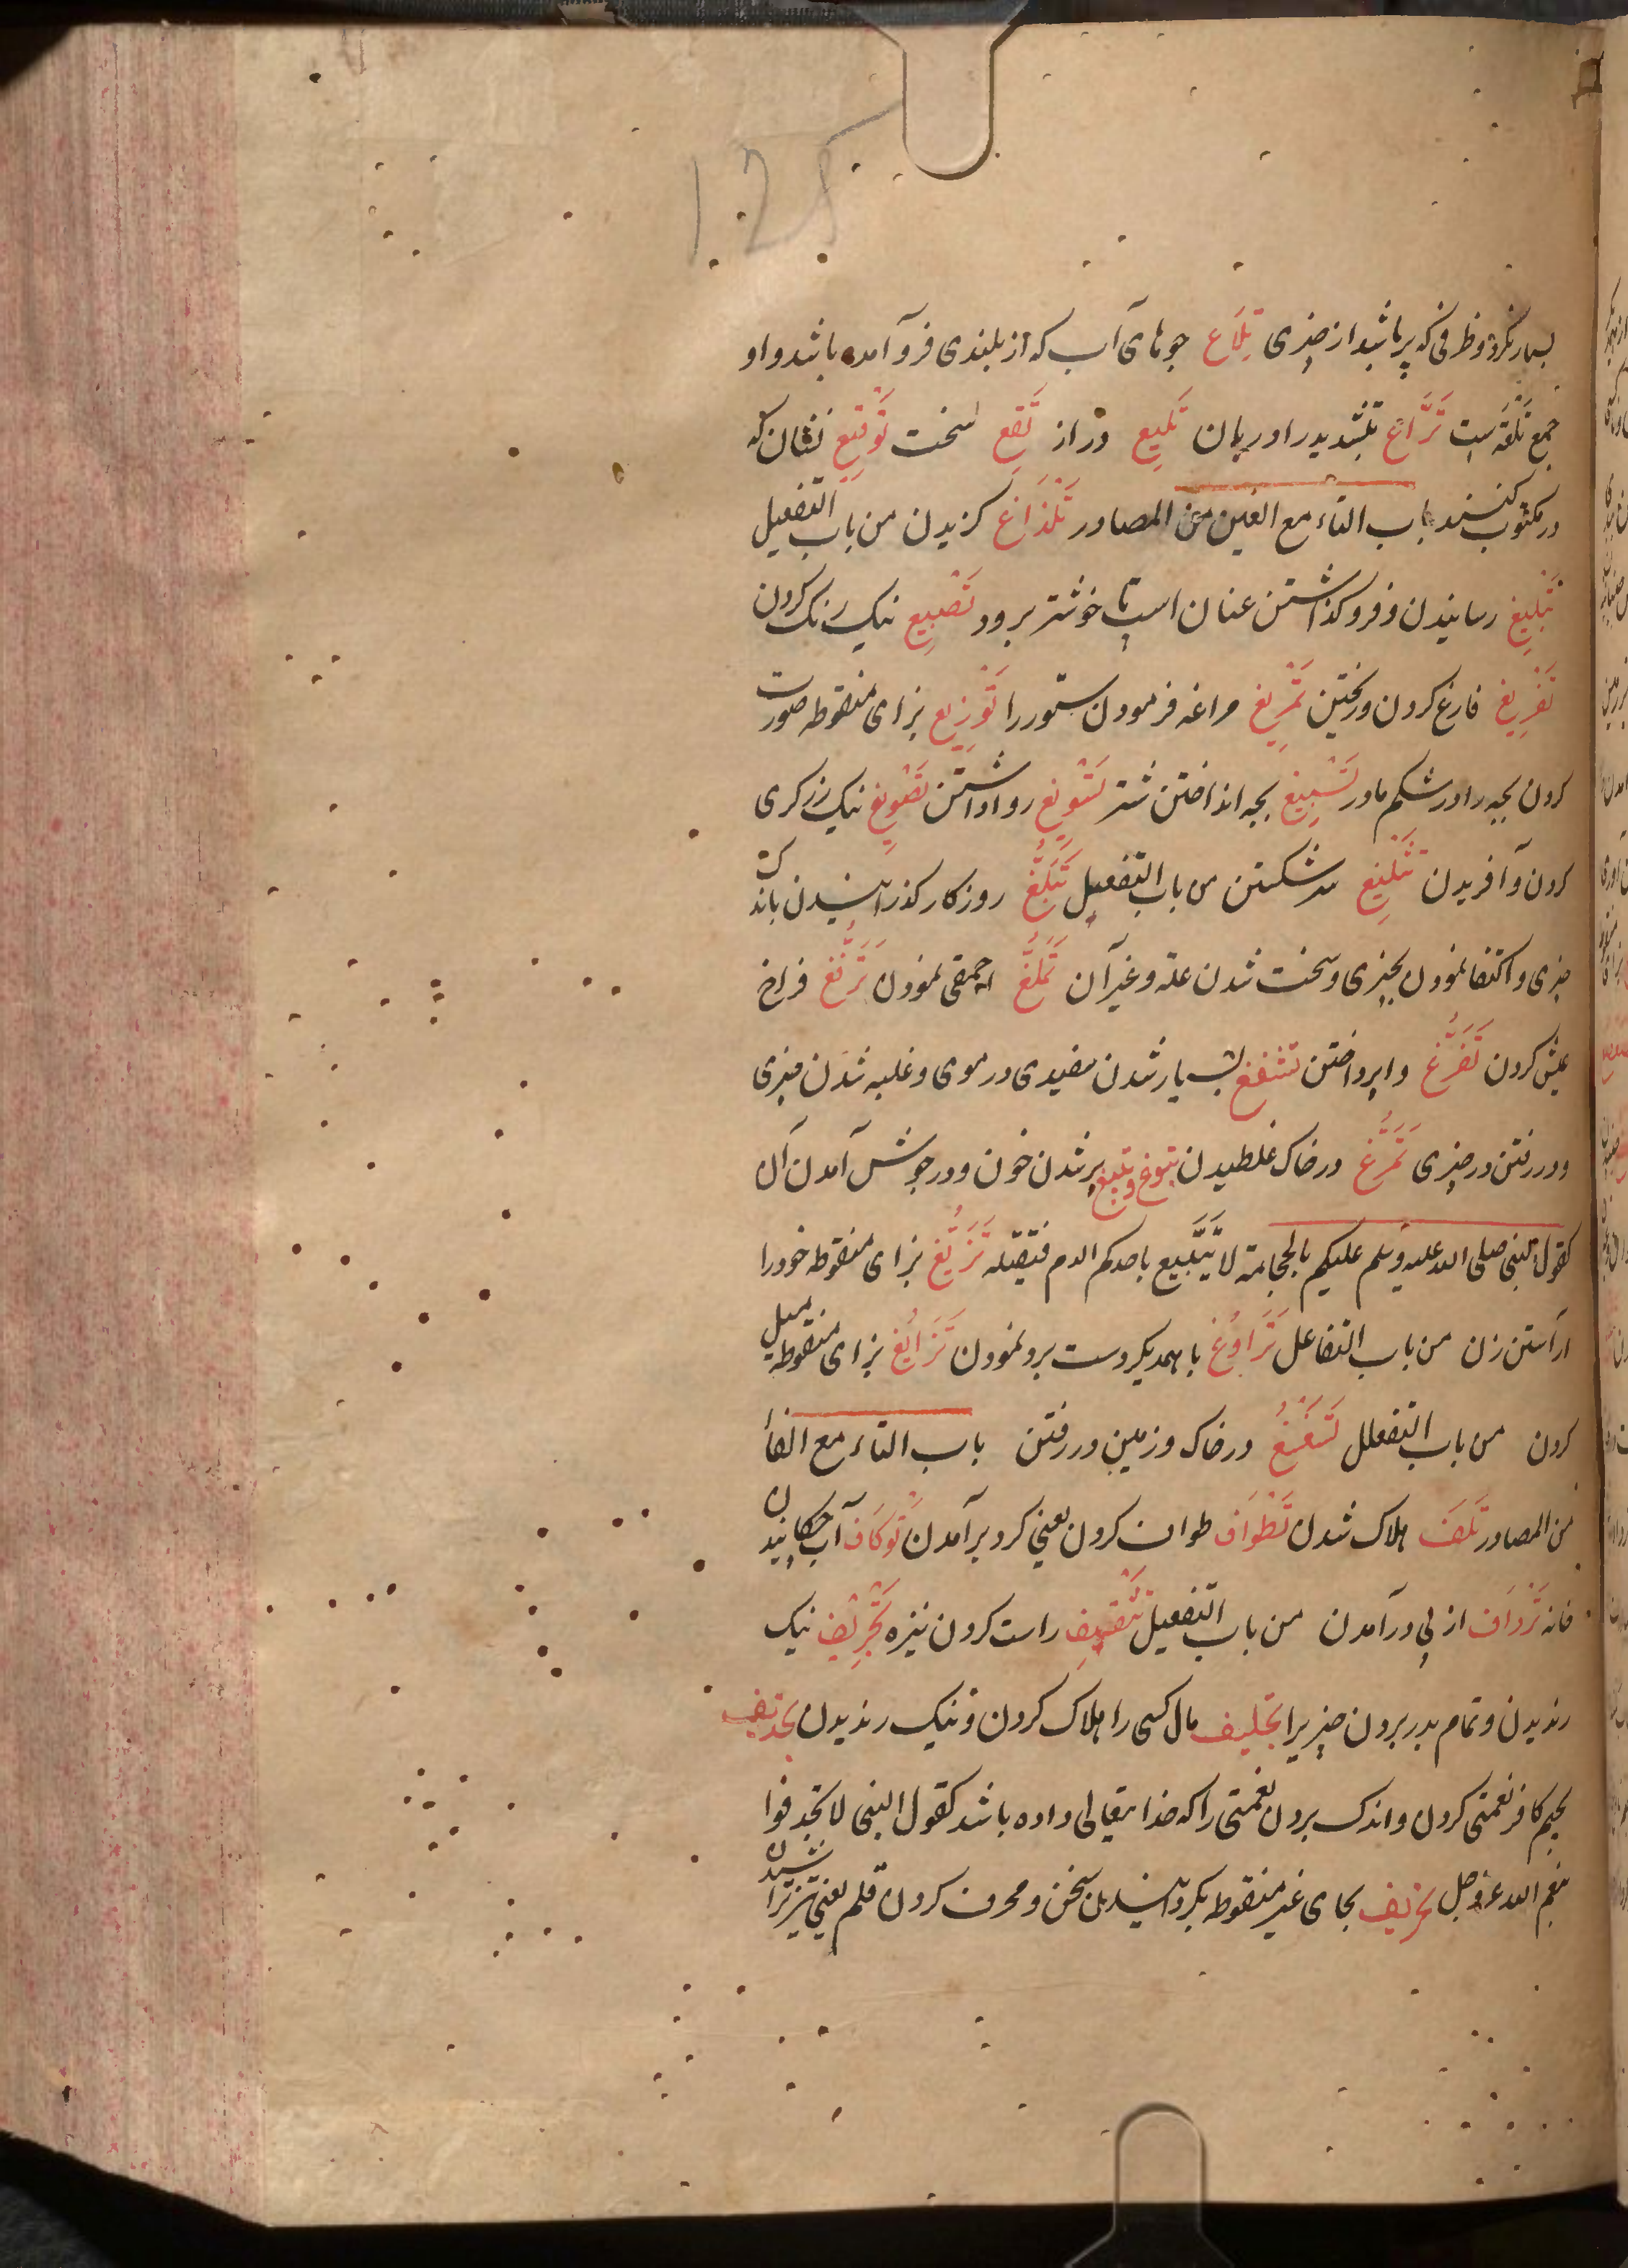 128
بسیار نکرد و ظرفی که پر باشد از چیزی تِلَاع جویهای آب که از بلندی فرو آمده باشد و او
جمع تَلْعَه است تَرَّاع بتشدید را دربان تَلِیع دراز تَقِع سخت تَوْقِیع نشان که
در مکتوب کنند باب التاء مع الغین من المصادر تَلْذَاغ گزیدن من باب التفعیل
تَبْلِیغ رسانیدن و فرو گذاشتن عنان اسپ تا خوشتر برود تَصْبِیغ نیک رنگ کردن
تَفْرِیغ فارغ کردن و ریختن تَمْرِیغ مراغه فرمودن ستور را تَوْزِیغ بزای منقوطه صورت
کردن بچه را در شکم مادر تَسْبِیغ بچه انداختن شتر تَسْوِیغ روا داشتن تَصْوِیغ نیک زرگری
کردن و آفریدن تَثْلِیغ سر شکستن من باب التفعیل تَبَلُّغ روزکار گذرانیدن باندک
چیزی و اکتفا نمودن بچیزی و سخت شدن علة و غیر آن تَمَلُّغ احمقی نمودن تَرَفُّغ فراخ
عیش کردن تَفَرُّغ واپرداختن تشفغ بسیار شدن سفیدی در موی و غلبه شدن چیزی
و در رفتن در چیزی تَمَرُّغ در خاک غلطیدن تبوغ و تبیغ پر شدن خون و در جوش آمدن آن
کقول النبی صلی الله علیه وسلم علیکم بالحجامة لا یَتَبَیَّغ باحدکم الدم فتقتله تَزَیُّغ بزای منقوطه خود را
آراستن زن من باب التفاعل تَرَاوُغ با همدیگر دست برد نمودن تَزَایُغ بزای منقوطه میل
کردن من باب التفعلل تَسَغْسُغ در خاک و زمین در رفتن باب التاء مع الفاء
من المصادر تَلَف هلاک شدن تَطْوَاف طواف کردن یعنی گرد بر آمدن تَوْکَاف آب چکانیدن
خانه تَرْدَاف از پی در آمدن من باب التفعیل تَثْقِیف راست کردن نیزه تَجْرِیف نیک
رندیدن و تمام بدر بردن چیزیرا تجلیف مال کسی را هلاک کردن و نیک رندیدن تجدیف
بجیم کافر نعمتی کردن و اندک بردن نعمتی را که خدا یتعالی داده باشد کقول النبی لا تجدفوا
بنعم الله عز وجل تحریف بحای غیر منقوطه بگردانیدن سخن و محرف کردن قلم یعنی تیز تراشیدن